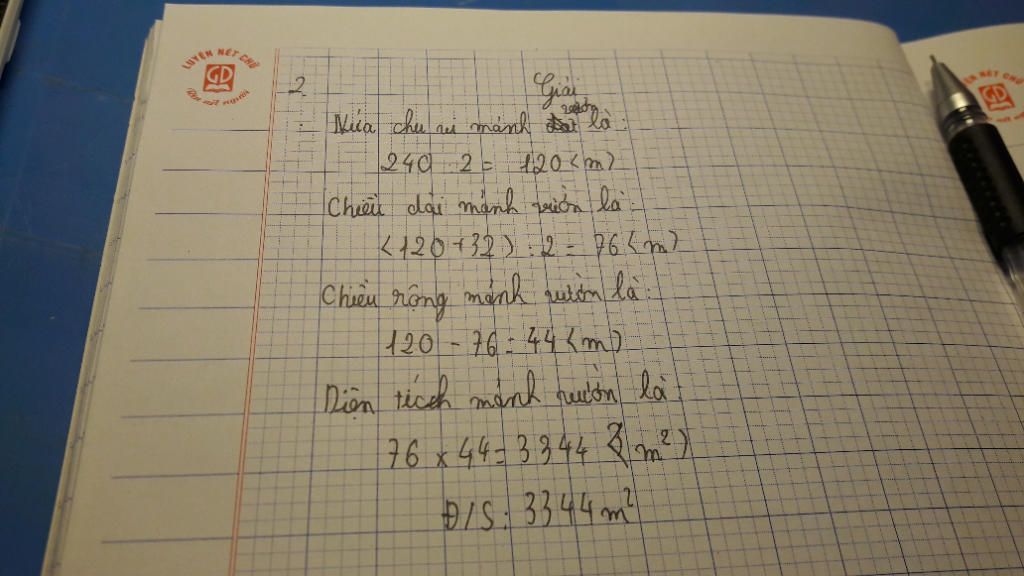 LUYỆN NÉT CHỮ
GD
Rèn nết người
2.
Giải
vườn
Nửa chu vi mảnh là:
240 : 2 = 120 (m)
Chiều dài mảnh vườn là:
(120 + 32) : 2 = 76 (m)
Chiều rộng mảnh vườn là:
120 - 76 = 44 (m)
Diện tích mảnh vườn là:
76 x 44 = 3344 (m²)
Đ/S: 3344 m²
LUYỆN NÉT CHỮ
GD